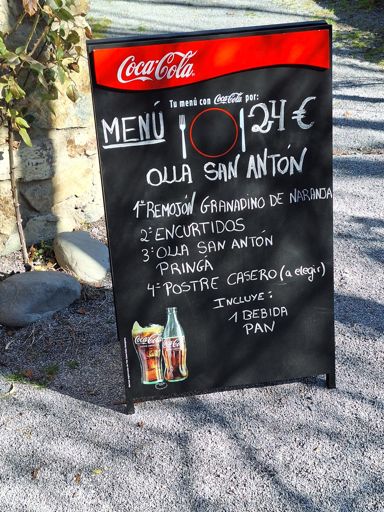 Coca-Cola
Tu menú con Coca-Cola por:
MENÚ 24 €
OLLA SAN ANTÓN
1º REMOJÓN GRANADINO DE NARANJA
2º ENCURTIDOS
3º OLLA SAN ANTÓN
PRINGÁ
4º POSTRE CASERO (a elegir)
INCLUYE:
1 BEBIDA
PAN
Coca-Cola
Coca-Cola